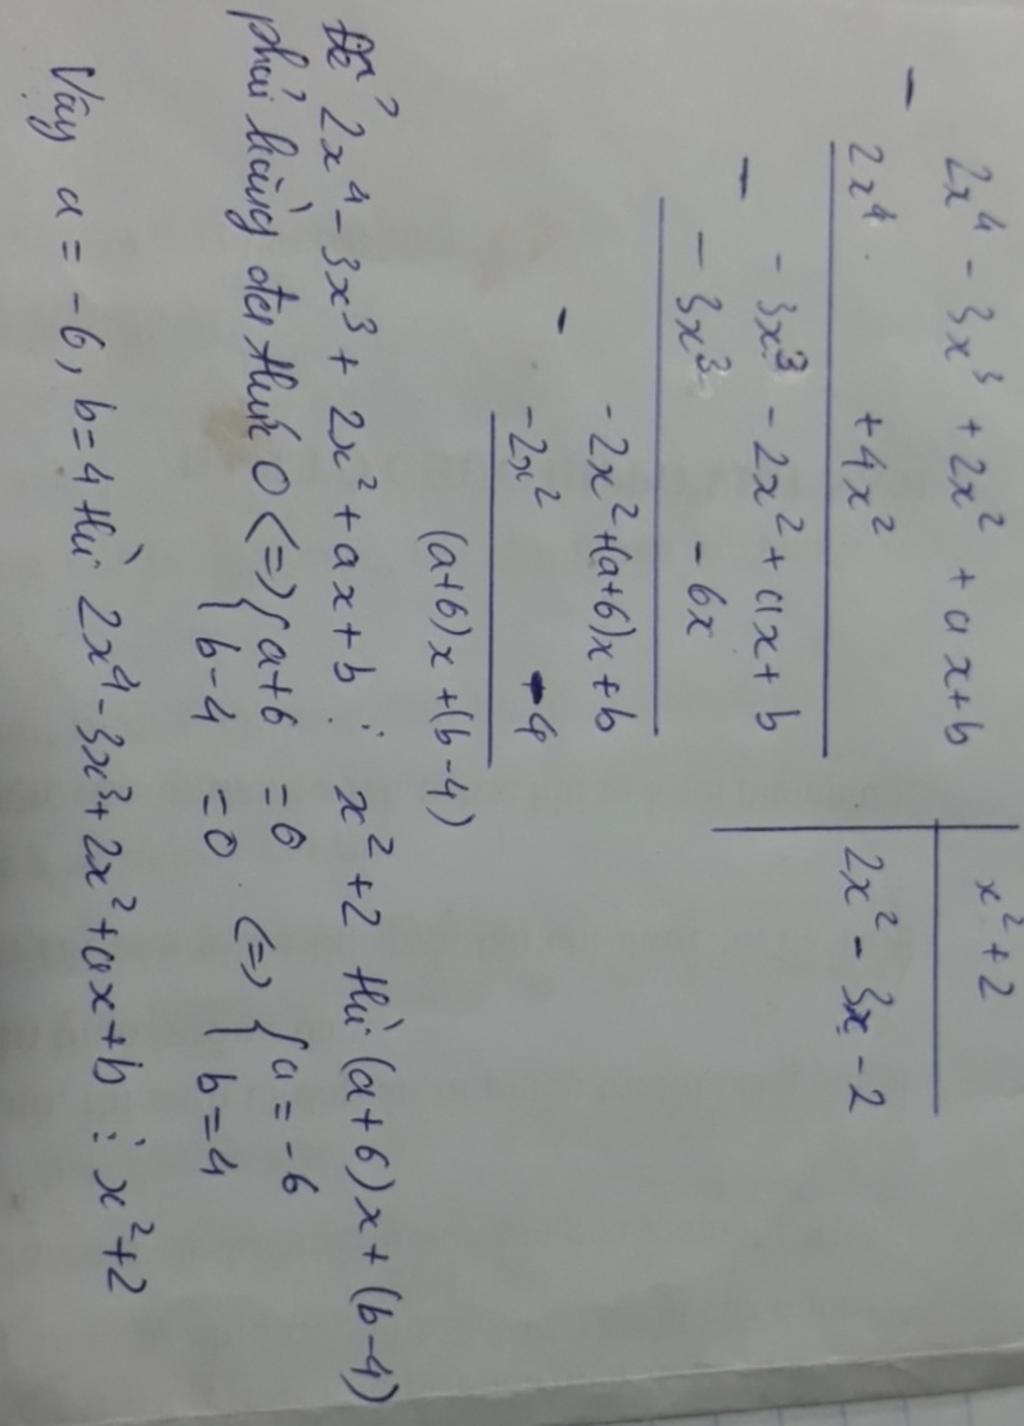 2x⁴ - 3x³ + 2x² + ax + b | x² + 2
-
2x⁴ + 4x² | 2x² - 3x - 2
- 3x³ - 2x² + ax + b
-
- 3x³ - 6x
- 2x² + (a+6)x + b
-
- 2x² - 4
(a+6)x + (b-4)
Để 2x⁴ - 3x³ + 2x² + ax + b ⋮ x² + 2 thì (a+6)x + (b-4)
phải bằng đa thức 0 <=> { a+6 = 0 <=> { a = -6
b-4 = 0 b = 4
Vậy a = -6, b = 4 thì 2x⁴ - 3x³ + 2x² + ax + b ⋮ x² + 2